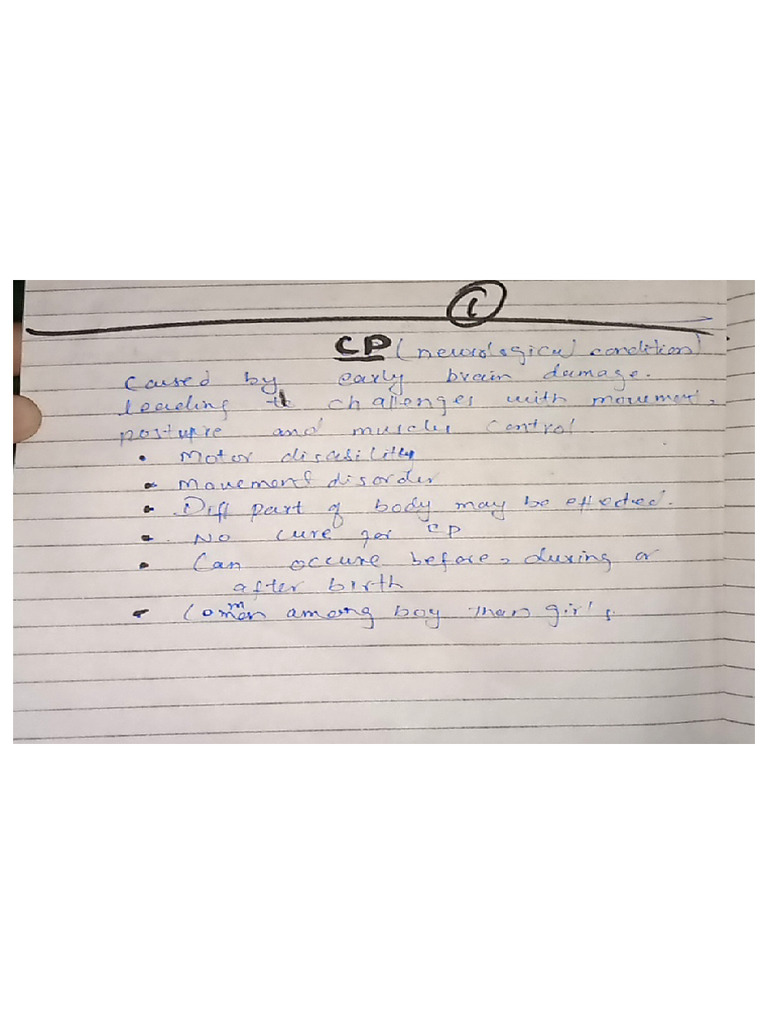 1
CP (neurological condition)
Caused by early brain damage.
leading to challenges with movement,
posture and muscles control.
• Motor disability
• Movement disorder
• Diff part of body may be effected.
• No cure for CP
• Can occure before, during or
after birth
• Common among boy than girls